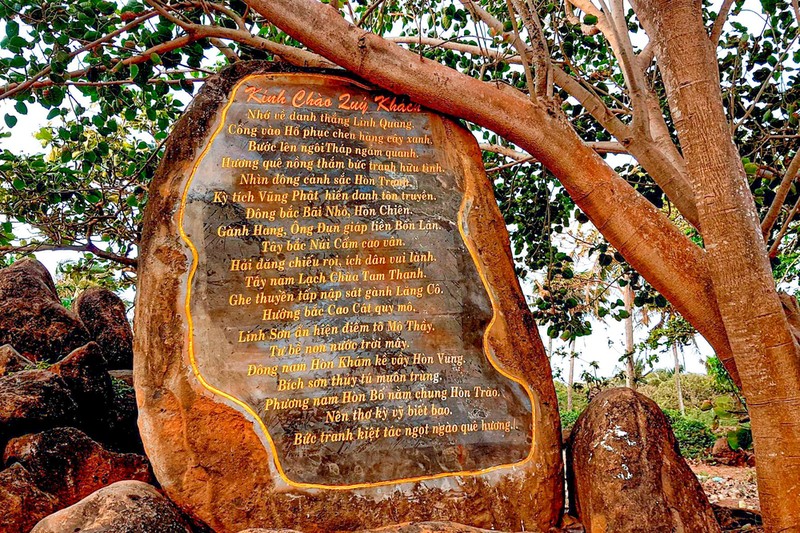 Kính Chào Quý Khách
Nhớ về danh thắng Linh Quang.
Cổng vào Hồ phục chen hàng cây xanh,
Bước lên ngôi Tháp ngắm quanh.
Hương quê nồng thắm bức tranh hữu tình.
Nhìn đông cảnh sắc Hòn Trạng.
Kỳ tích Vũng Phật hiển danh tôn truyền.
Đông bắc Bãi Nhỏ, Hòn Chiên.
Gành Hang, Ông Đụn giáp liên Bồn Lân.
Tây bắc Núi Cấm cao vân.
Hải đăng chiếu rọi, ích dân vui lành.
Tây nam Lạch Chùa Tam Thanh.
Ghe thuyền tấp nập sát gành Lăng Cô.
Hướng bắc Cao Cát quy mô.
Linh Sơn ẩn hiện điểm tô Mộ Thầy.
Tư bề non nước trời mây.
Đông nam Hòn Khám kề vầy Hòn Vung.
Bích sơn thủy tú muôn trùng.
Phương nam Hòn Bố nằm chung Hòn Trào.
Nên thơ kỳ vỹ biết bao.
Bức tranh kiệt tác ngọt ngào quê hương...